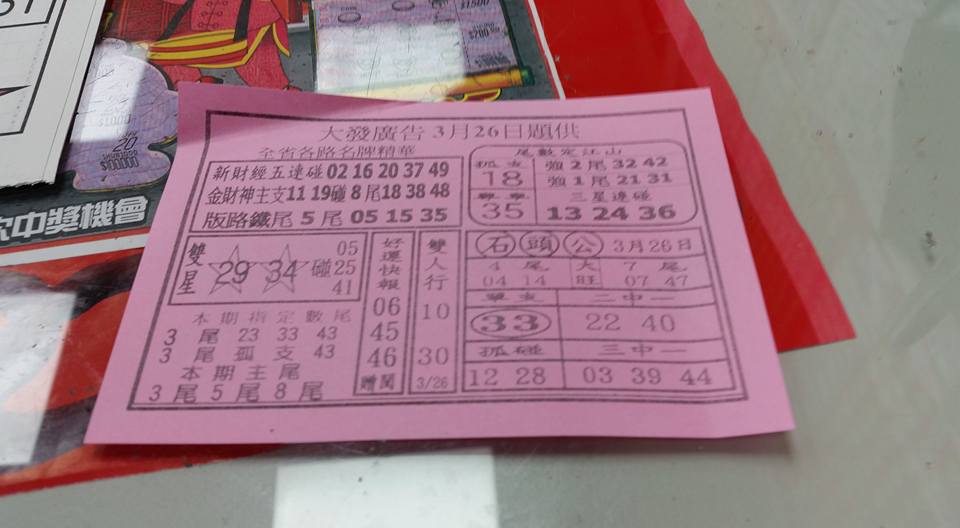 大發廣告 3月26日題供
全省各路名牌精華
新財經五連碰 02 16 20 37 49
金財神主支 11 19 碰 8 尾 18 38 48
版路鐵尾 5 尾 05 15 35
尾數定江山
孤支 強 2 尾 32 42
18 強 1 尾 21 31
三星連碰
35 13 24 36
雙星 29 34 碰 05 25 41
本期指定數尾
3 尾 23 33 43
3 尾 孤支 43
本期主尾
3 尾 5 尾 8 尾
好運快報
06
45
46
贈閱
雙人行
10
30
3/26
石頭公 3月26日
4 尾 大 7 尾
04 14 旺 07 47
單支 二中一
33 22 40
孤碰 三中一
12 28 03 39 44
中獎機會
20
$100000
$1500